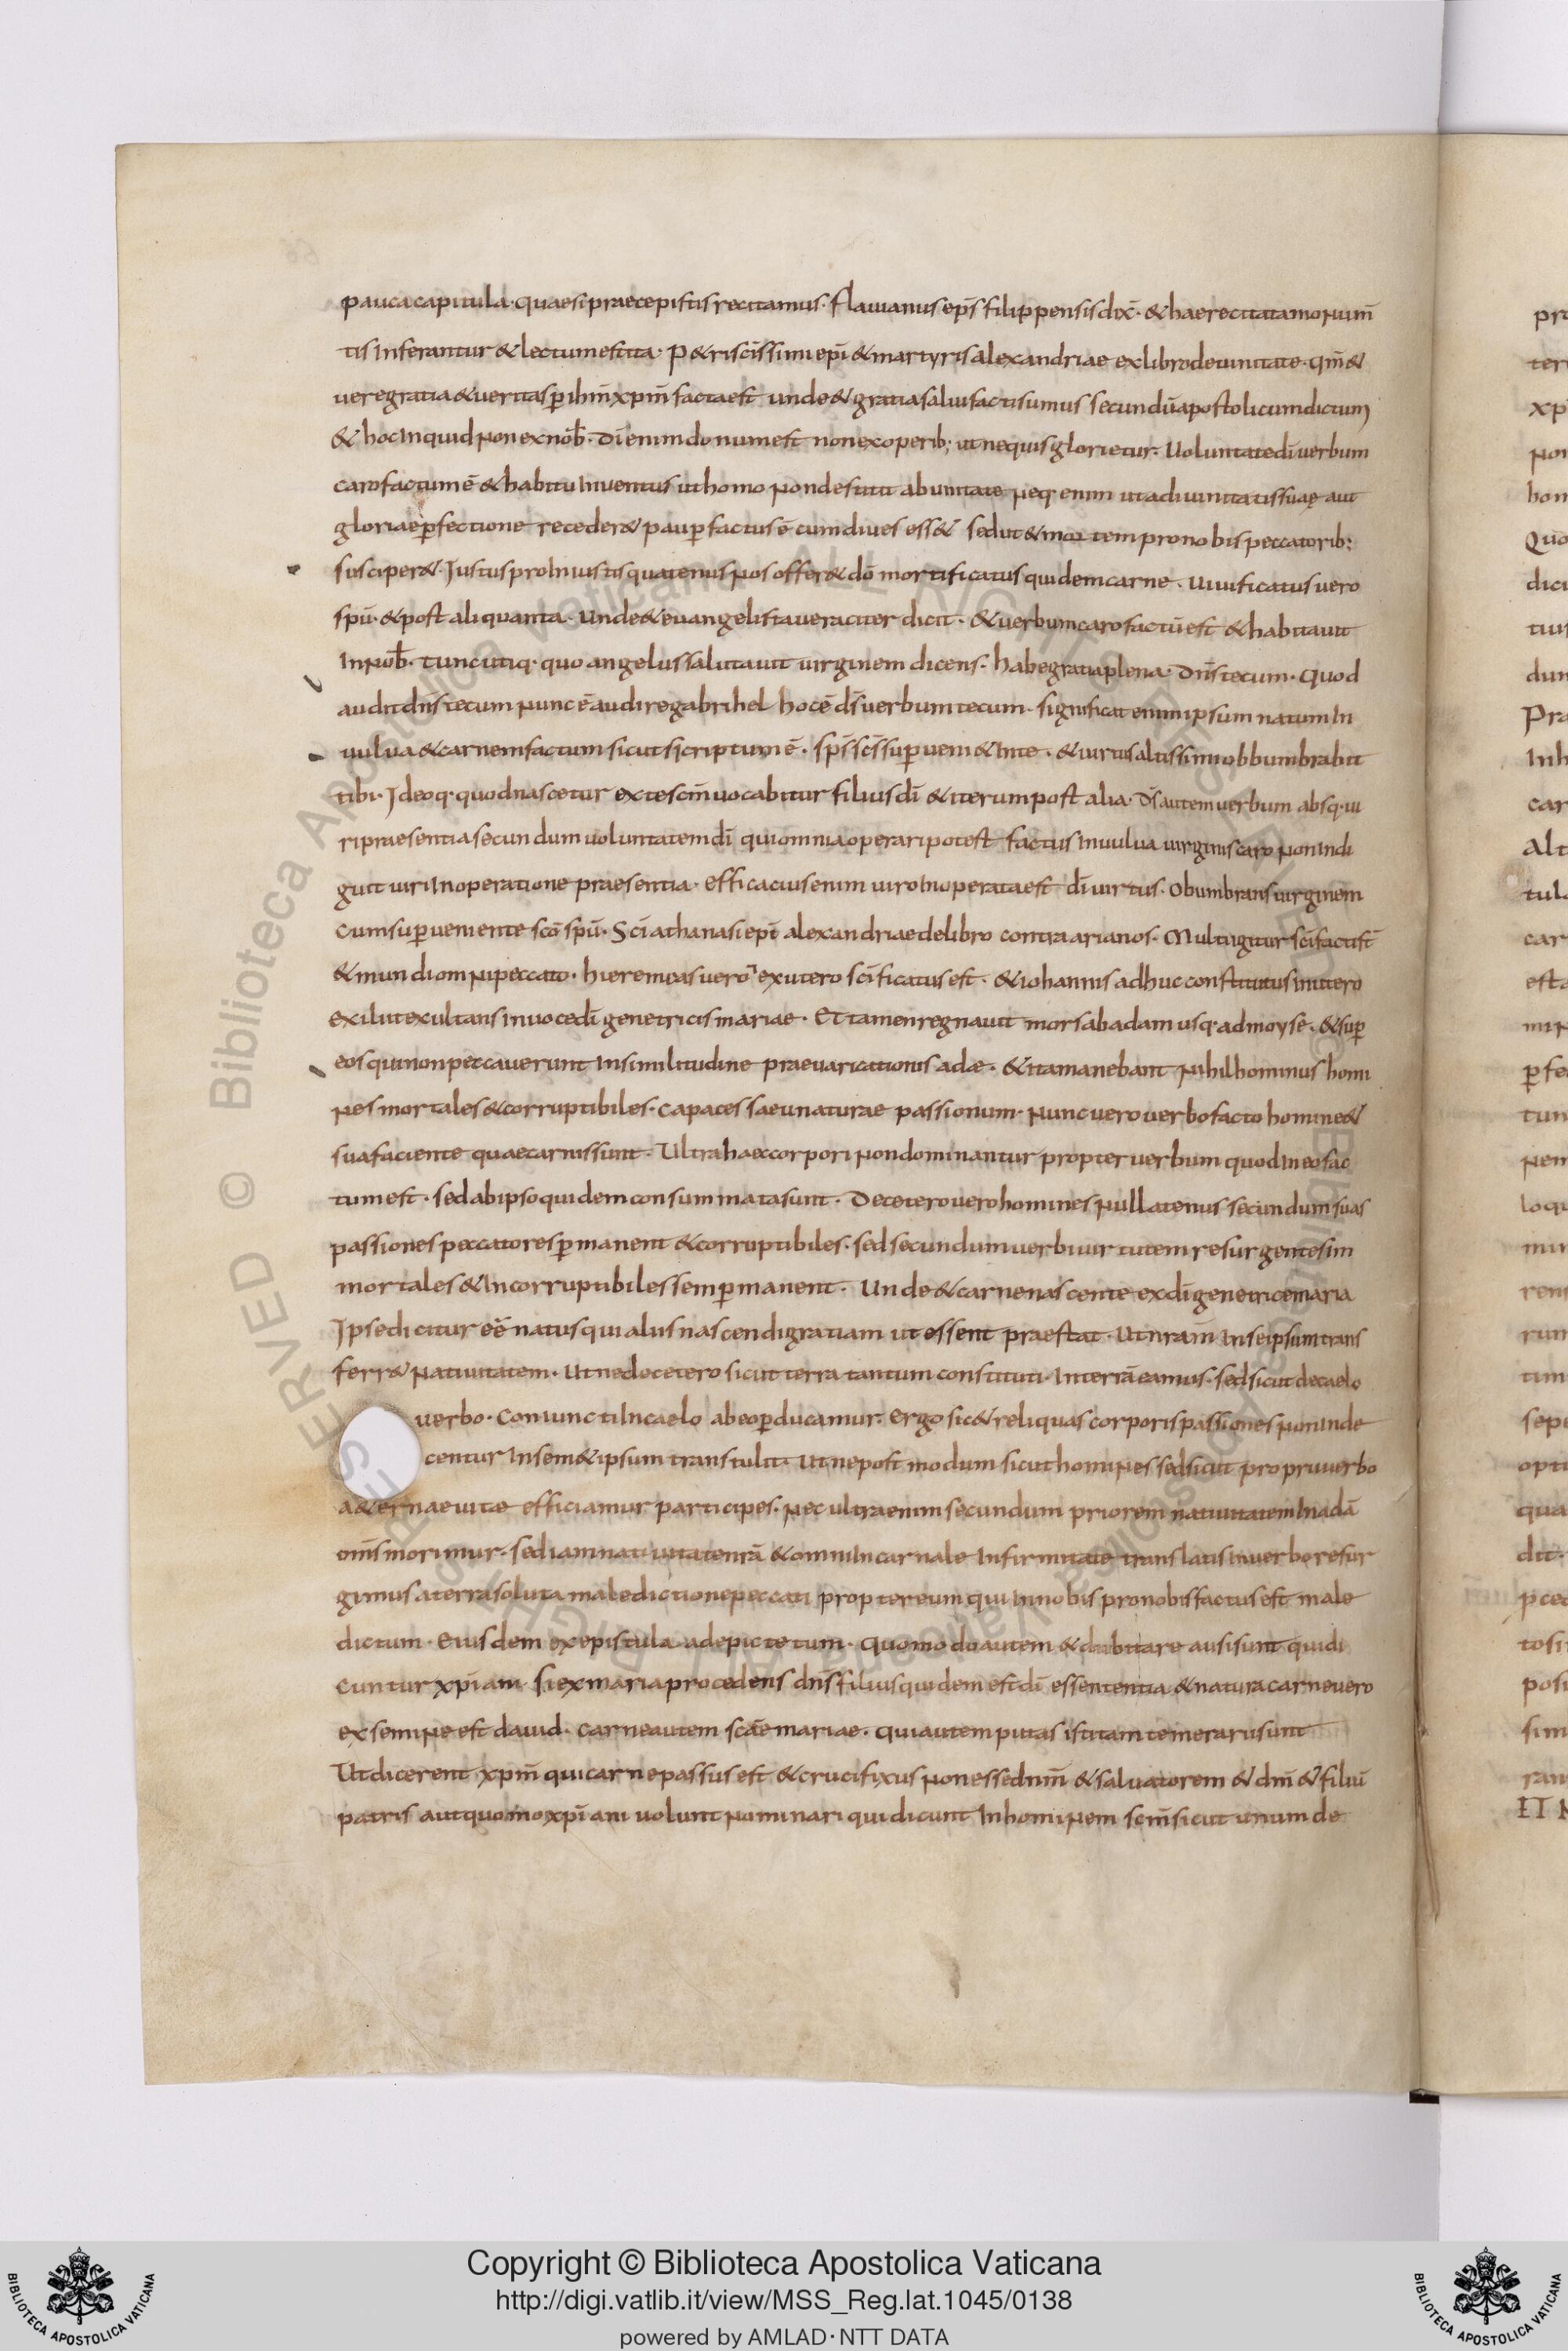 pauca capitula· quae si praecepistis recitamus· Flavianus ep̄s filippensis dix̄· & haec recitata monum̄
tis inferantur & lectum est ita· P&ri sc̄issimi ep̄i & martyris alexandriae ex libro de divinitate· qm̄ &
vere gratia & veritas p̄ ih̄m xp̄m facta est unde & gratia salvi facti sumus secundū apostolicum dictum
& hoc inquid non ex nob̄· dī enim donum est non ex operib; ut ne quis glorietur· Voluntate dī verbum
caro factum ē & habitu inventus ut homo non destitit ab unitate neq· enim ut a divinitatis suae aut
gloriae p̄fectione receder& paup̄ factus ē cum dives ess& sed ut & mortem pro nobis peccatorib;
susciper& Justus pro iniustis quatenus nos offer& dō mortificatus quidem carne· vivificatus vero
spū· & post aliquanta· unde & evangelista veraciter dicit· & verbum caro factū est & habitavit
in nob̄· tunc utiq· quo angelus salutavit virginem dicens· habe gratia plena· dn̄s tecum· Quod
audit dn̄s tecum nunc ē audire gabrihel hoc ē d̄s verbum tecum· significat enim ipsum natum in
vulva & carnem factum sicut scriptum ē· sp̄s sc̄s sup̄veni& in te· & virtus altissimi obbumbrabit
tibi· Ideoq· quod nascetur ex te sc̄m vocabitur filius dī & iterum post alia· D̄s autem verbum absq· vi
ri praesentia secundum voluntatem dī qui omnia operari potest factus in vulva virginis caro non indi
guit viri inoperatione praesentia· efficacius enim viro inoperata est dī virtus· Obumbrans virginem
cum sup̄veniente sc̄o spū· Sc̄i athanasi ep̄i alexandriae de libro contra arianos· Multi igitur sc̄i facti st̄
& mundi omni peccato· hieremias vero ex utero sc̄ificatus est· & iohannis adhuc constitutus in utero
exilut exultans in voce dī genetricis mariae· Et tamen regnavit mors ab adam usq· ad moyse· & sup̄
eos qui non peccaverunt in similitudine praevaricationis adae· & ita manebant nihilhominus homi
nes mortales & corruptibiles· capaces saeu naturae passionum· nunc vero verbo facto homine &
sua faciente quae carnis sunt· Ultra haec corpori non dominantur propter verbum quod in eo fac
tum est· sed ab ipso quidem consummata sunt· De cetero vero homines nullatenus secundum suas
passiones peccatores p̄manent & corruptibiles· sed secundum verbi virtutem resurgentes im
mortales & incorruptibiles sem p̄manent· Unde & carne nascente ex dī genetrice maria
Ipse dicitur eē natus qui aliis nascendi gratiam ut essent praestat· Ut nr̄am in se ipsum trans
ferr& nativitatem· Ut ne de cetero sicut terra tantum constituti· In terrā eamus· sed sicut de caelo
verbo· Coniuncti in caelo ab eo p̄ducamur· Ergo sic & reliquas corporis passiones non inde
centur in sem&ipsum transtulit· Ut ne postmodum sicut homines sed sicut proprii verbo
a&ernae vitae efficiamur participes· nec ultra enim secundum priorem nativitatem in adā
om̄s morimur· sed iam nativitate nr̄a & omni in carnale infirmitate translatis in verbo resur
gimus a terra soluta maledictione peccati propter eum qui in nobis pro nobis factus est male
dictum· Eiusdem ex epistula ad epictetum· Quomodo autem & dubitare ausi sunt qui di
cuntur xp̄iani· si ex maria procedens dn̄s filius quidem est dī essententia & natura carne vero
ex semine est david· carne autem sc̄ae mariae· qui autem putas isti tam temerarii sunt
Ut dicerent xp̄m qui carne passus est & crucifixus non esse dn̄m & salvatorem & dm̄ & filiū
patris aut quomo xp̄iani volunt nominari qui dicunt in hominem sc̄m sicut unum de
Copyright © Biblioteca Apostolica Vaticana
http://digi.vatlib.it/view/MSS_Reg.lat.1045/0138
powered by AMLAD·NTT DATA